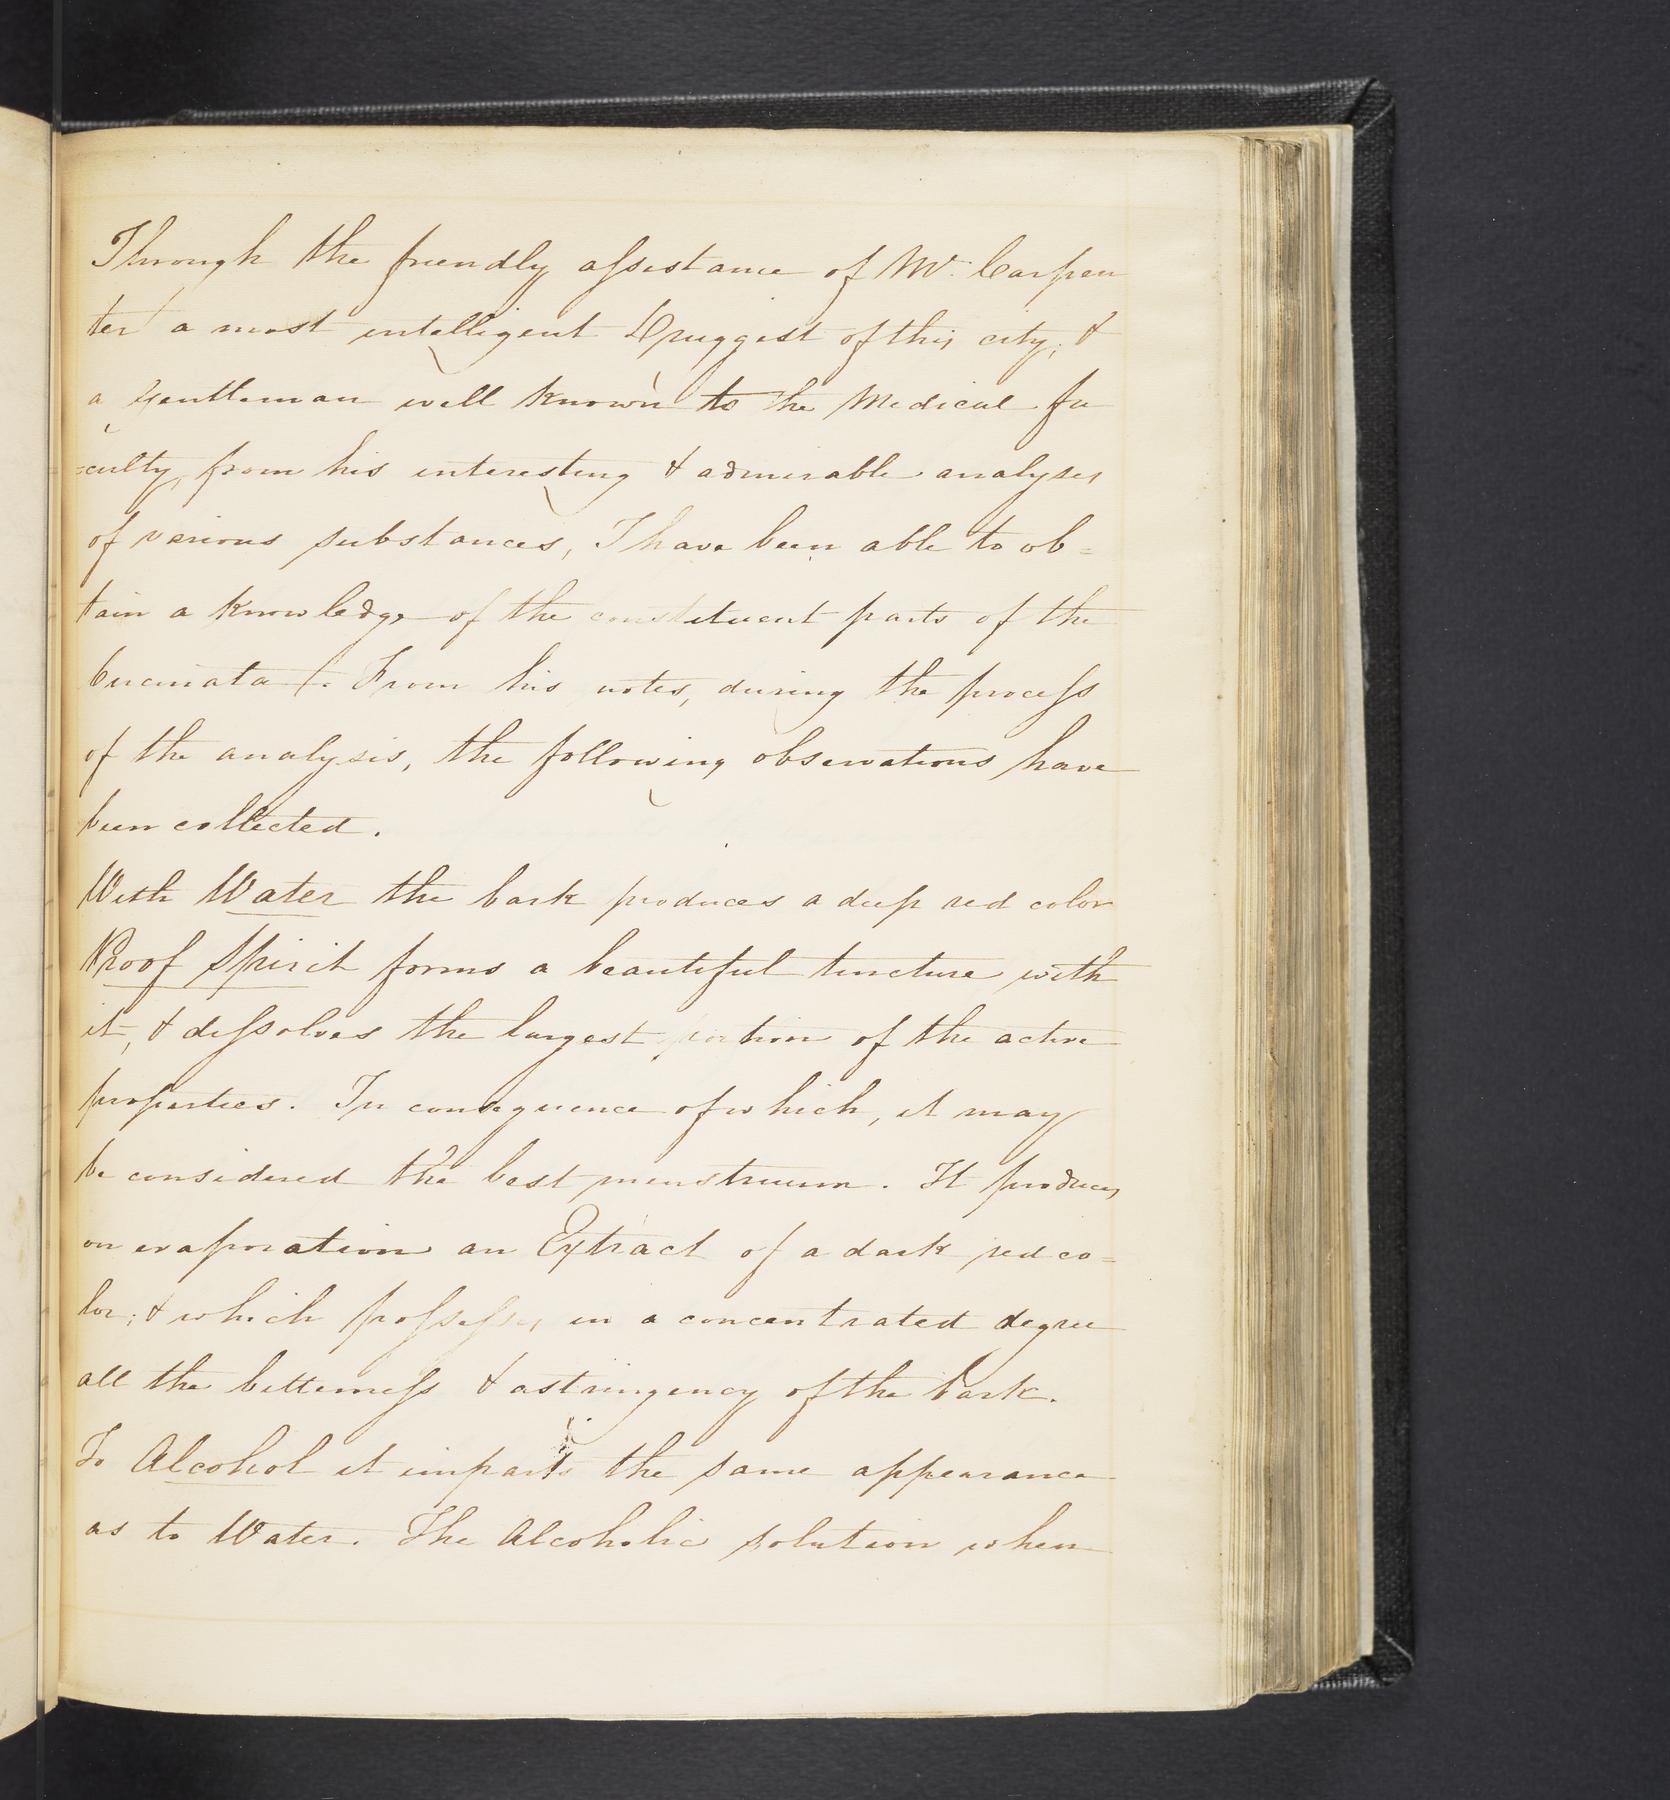 Through the friendly assistance of Mr. Carpen
ter a most intelligent Druggist of this city, &
a gentleman well known to the Medical fa
=culty, from his interesting & admirable analyses
of various substances, I have been able to ob=
tain a knowledge of the constituent parts of the
From his notes, during the process
of the analysis, the following observations have
been collected.
With Water the bark produces a deep red color
Proof Spirit forms a beautiful tincture with
it, & dissolves the largest portion of the active
properties. In consequence of which, it may
be considered the best menstruum. It produces
on evaporation an Extract of a dark red co=
lor; & which possesses in a concentrated degree
all the bitterness & astringency of the bark.
To Alcohol it imparts the same appearance
as to Water. The Alcoholic solution when